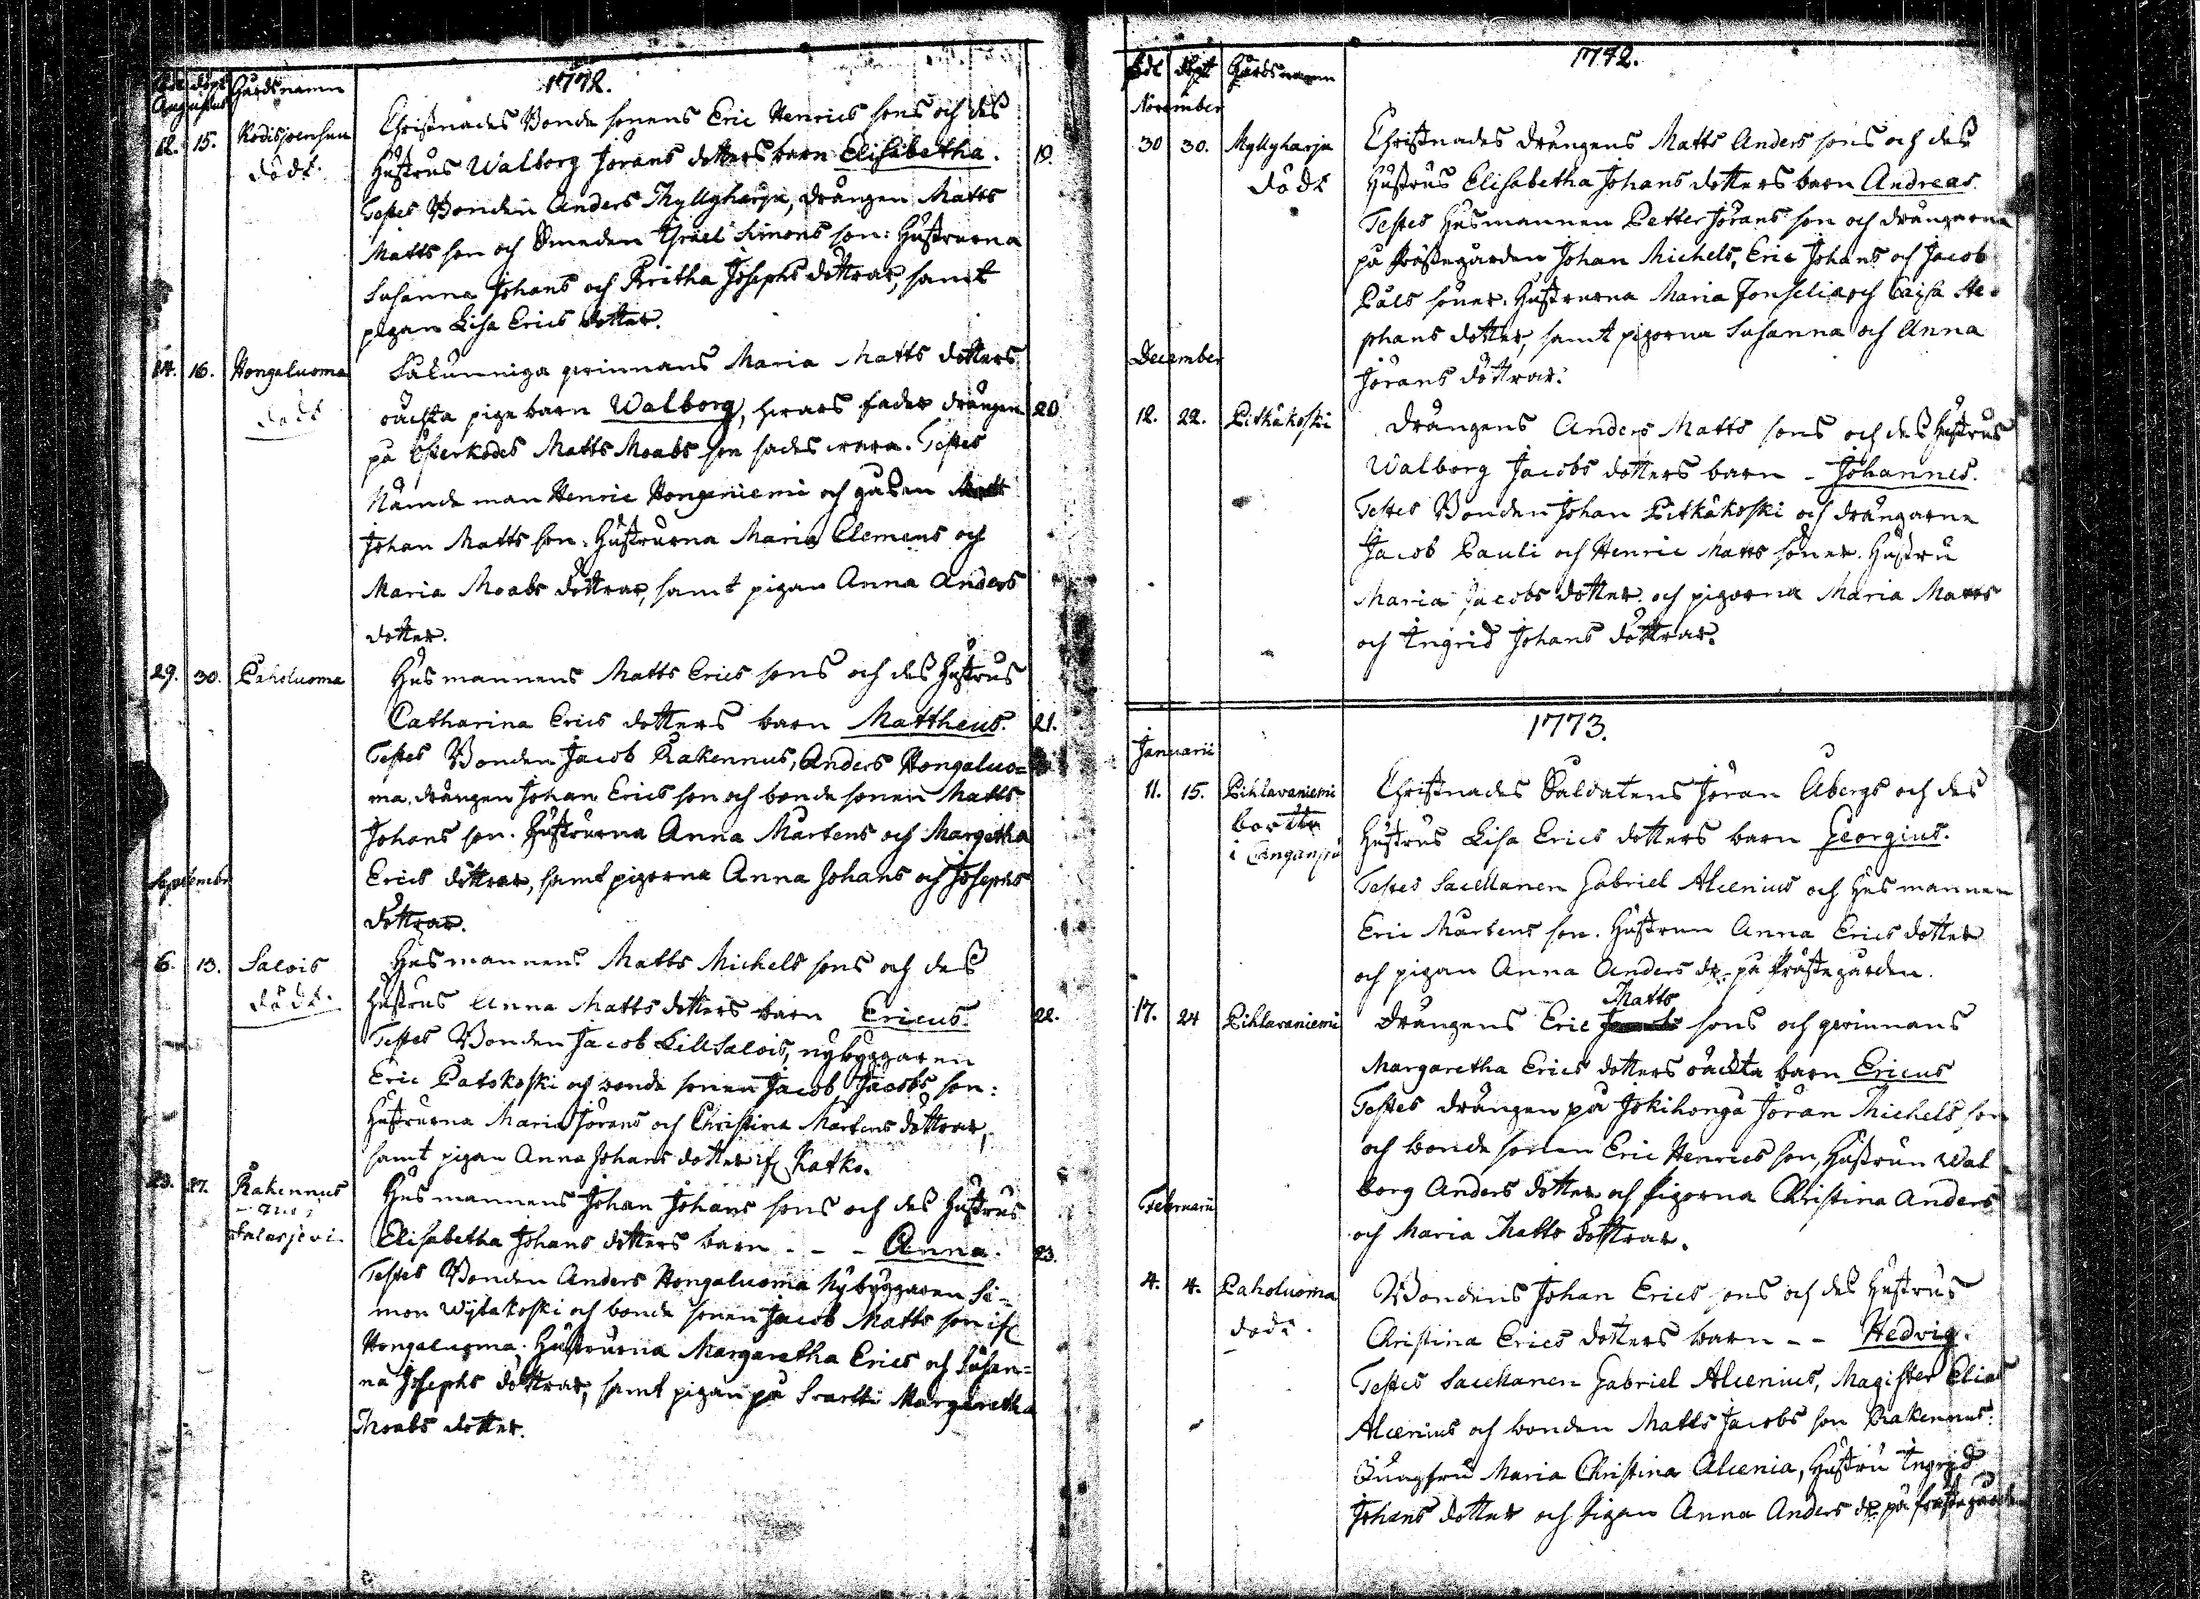 1772.
Född döpt Gårdsnamn
Augustus
12. 15. Kodisjoensuu
död.
Christnades Bonde sonens Eric Henrics sons och des
Hustrus Walborg Jörans dotters barn Elisabetha. 19.
Testes Bonden Anders Myllyharju, drängen Matts
Matts son och Smeden Israel Simons son: Hustrurna
Susanna Johans och Britha Josephs döttrar, samt
pigan Lisa Erics dotter.
14. 16. Hongaluoma
död
Salunniga qvinnans Maria Matts dotters
oächta pige barn Walborg, hvars fader drängen 20
på Österkodes Matts Moabs son sades wara. Testes
Nämde man Henric Hongoniemi och gåsen
Johan Matts son. Hustrurna Maria Clemens och
Maria Moabs döttrar, samt pigan Anna Anders
dotter.
29. 30. Paholuoma
Husmannens Matts Erics sons och des Hustrus
Catharina Erics dotters barn Mattheus. 21.
Testes Bonden Jacob Rakennus, Anders Hongaluo=
ma, drängen Johan Erics son och bonde sonen Matts
Johans son. Hustrurna Anna Mårtens och Margetha
Erics döttrar, samt pigorna Anna Johans och Josephs
döttrar.
September
6. 13. Salois
död.
Husmannens Matts Michels sons och des
Hustrus Anna Matts dotters barn Ericus. 22.
Testes Bonden Jacob Lillsalois, nybyggaren
Eric Patokoski och bonde sonen Jacob Jacobs son:
Hustrurna Maria Jörans och Christina Mårtens döttrar,
samt pigan Anna Johans dotter if Katko.
23. 27. Rakennus
Jalasjervi.
Husmannens Johan Johans sons och des Hustrus
Elisabetha Johans dotters barn - - - Anna. 23.
Testes Bonden Anders Hongaluoma Nybyggaren Si=
mon Wijtakoski och bonde sonen Jacob Matts son if
Hongaluoma; Hustrurna Margaretha Erics och Susan=
na Josephs döttrar, samt pigan på Svartti Margaretha
Moabs dotter.
1772.
Född döpt Gårdsnamn
November
30 30. Myllyharju
död
Christnades drängens Matts Anders sons och des
Hustrus Elisabetha Johans dotters barn Andreas.
Testes Husmannen Petter Jörans son och drängarna
på Prästegården Johan Michels, Eric Johans och Jacob
Påls söner. Hustrurna Maria Fonselia och Caisa Ste-
phans dotter, samt pigorna Susanna och Anna
Jörans döttrar.
December
12. 22. Pitkäkoski
Drängens Anders Matts sons och des Hustrus
Walborg Jacobs dotters barn - Johannes.
Testes Bonden Johan Pitkäkoski och drängarne
Jacob Pauli och Henric Matts söner. Hustru
Maria Jacobs dotter och pigorna Maria Matts
och Ingrid Johans döttrar.
1773.
Januarii
11. 15. Pihlavaniemi
Christnades Saldatens Jöran Åbergs och des
Hustrus Lisa Erics dotters barn Georgius.
Testes Sacellanen Gabriel Alcenius och Husmannen
Eric Mårtens son. Hustrun Anna Erics dotter
och pigan Anna Anders dr. på Prästegården.
17. 24 Pihlavaniemi
Drängens Eric Matts sons och qvinnans
Margaretha Erics dotters oächta barn Ericus
Testes drängen på Jokihonga Jöran Michels son
och bonde sonen Eric Henrics son, Hustrun Wal
borg Anders dotter och pigorna Christina Anders
och Maria Matts döttrar.
Februarii
4. 4. Paholuoma
död.
Bondens Johan Erics sons och des Hustrus
Christina Erics dotters barn - - Hedvig.
Testes Sacellanen Gabriel Alcenius, Magister Elias
Alcenius och bonden Matts Jacobs son Rakennus:
Jungfru Maria Christina Alcenia, Hustru Ingrid
Johans dotter och pigan Anna Anders dr. på Prästegården